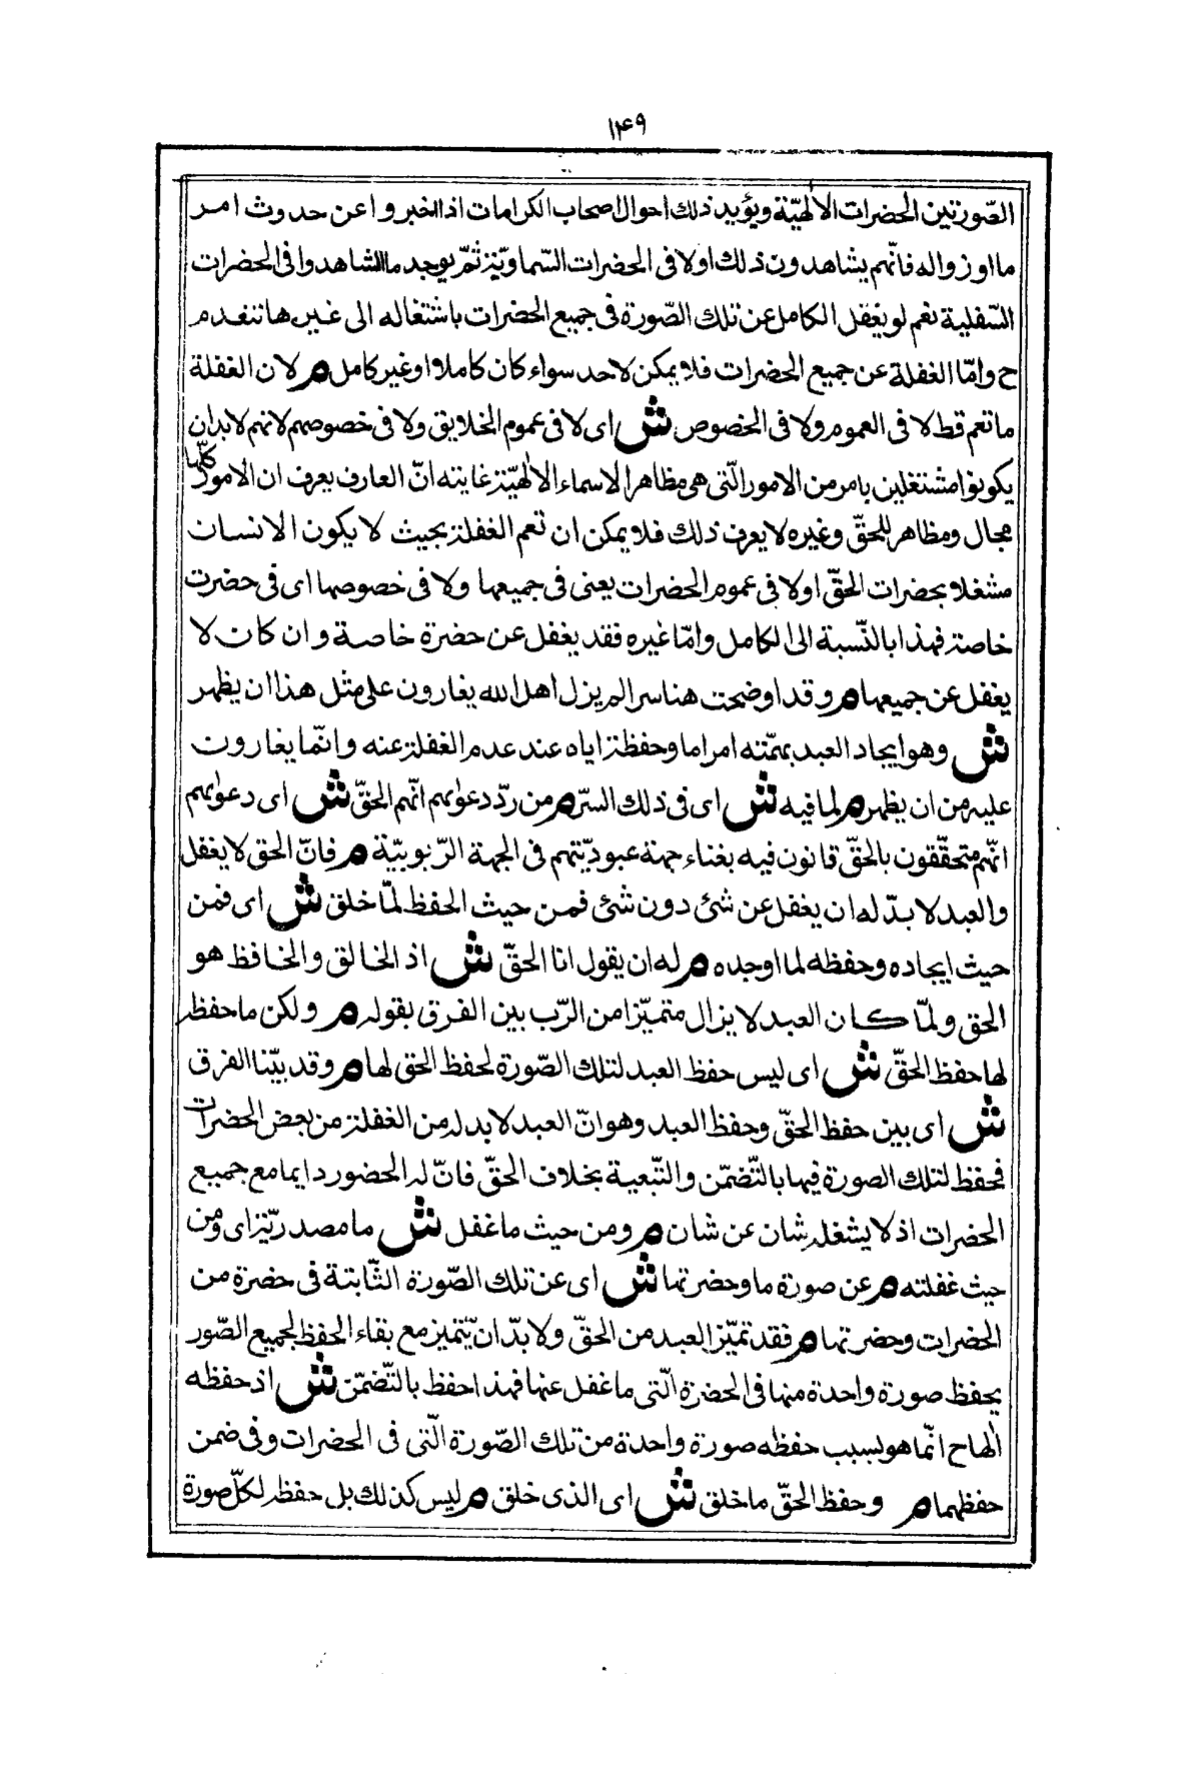 ۱۴۹
الصّورتين الحضرات الالٰهيّة ويؤيد ذلك احوال اصحاب الكرامات اذا اخبروا عن حدوث امر
ما او زواله فانّهم يشاهدون ذلك اولا فى الحضرات السّماويّة ثمّ يوجد ما شاهدوا فى الحضرات
السّفلية نعم لو يغفل الكامل عن تلك الصّورة فى جميع الحضرات باشتغاله الى غيرها تنعدم
ح وامّا الغفلة عن جميع الحضرات فلا يمكن لاحد سواء كان كاملا او غير كامل م لان الغفلة
ما تعم قط لا فى العموم ولا فى الخصوص ش اى لا فى عموم الخلايق ولا فى خصوصهم لانهم لابد ان
يكونوا مشتغلين بامر من الامور الّتى هى مظاهر الاسماء الالٰهيّة غايته انّ العارف يعرف ان الامور كلّها
مجال ومظاهر للحقّ وغيره لا يعرف ذلك فلا يمكن ان تعم الغفلة بحيث لا يكون الانسان
مشغلا بحضرات الحقّ اولا فى عموم الحضرات يعنى فى جميعها ولا فى خصوصها اى فى حضرت
خاصة فهذا بالنّسبة الى الكامل وامّا غيره فقد يغفل عن حضرة خاصة وان كان لا
يغفل عن جميعها م وقد اوضحت هنا سرا لم يزل اهل الله يغارون على مثل هذا ان يظهر
ش وهو ايجاد العبد بهمّته امرا ما وحفظه اياه عند عدم الغفلة عنه وانّما يغارون
عليه من ان يظهر م لما فيه ش اى فى ذلك السرّ م من ردّ دعوٰيهم انّهم الحقّ ش اى دعوٰيهم
انّهم متحقّقون بالحقّ قانون فيه بغناء جهة عبوديّتهم فى الجهة الرّبوبيّة م فانّ الحق لا يغفل
والعبد لا بدّ له ان يغفل عن شئ دون شئ فمن حيث الحفظ لمّا خلق ش اى فمن
حيث ايجاده وحفظه لما اوجده م له ان يقول انا الحقّ ش اذ الخالق والحافظ هو
الحق ولمّا كان العبد لا يزال متميّزا من الرّب بين الفرق بقوله م ولكن ما حفظه
لها حفظ الحقّ ش اى ليس حفظ العبد لتلك الصّورة لحفظ الحق لها م وقد بيّنا الفرق
ش اى بين حفظ الحقّ وحفظ العبد وهو انّ العبد لا بد له من الغفلة من بعض الحضرات
فحفظ لتلك الصورة فيها بالتّضمّن والتّبعية بخلاف الحقّ فانّ له الحضور دايما مع جميع
الحضرات اذ لا يشغله شان عن شان م ومن حيث ما غفل ش ما مصدريّة اى ومن
حيث غفلته م عن صورة ما وحضرتها ش اى عن تلك الصّورة الثّابتة فى حضرة من
الحضرات وحضرتها م فقد تميّز العبد من الحقّ ولا بدّ ان يّتميز مع بقاء الحفظ لجميع الصّور
يحفظ صورة واحدة منها فى الحضرة الّتى ما غفل عنها فهذا حفظ بالتّضمّن ش اذ حفظه
الٰها ح انّما هو بسبب حفظه صورة واحدة من تلك الصّورة الّتى فى الحضرات وفى ضمن
حفظهما م وحفظ الحقّ ما خلق ش اى الذى خلق م ليس كذلك بل حفظه لكلّ صورة